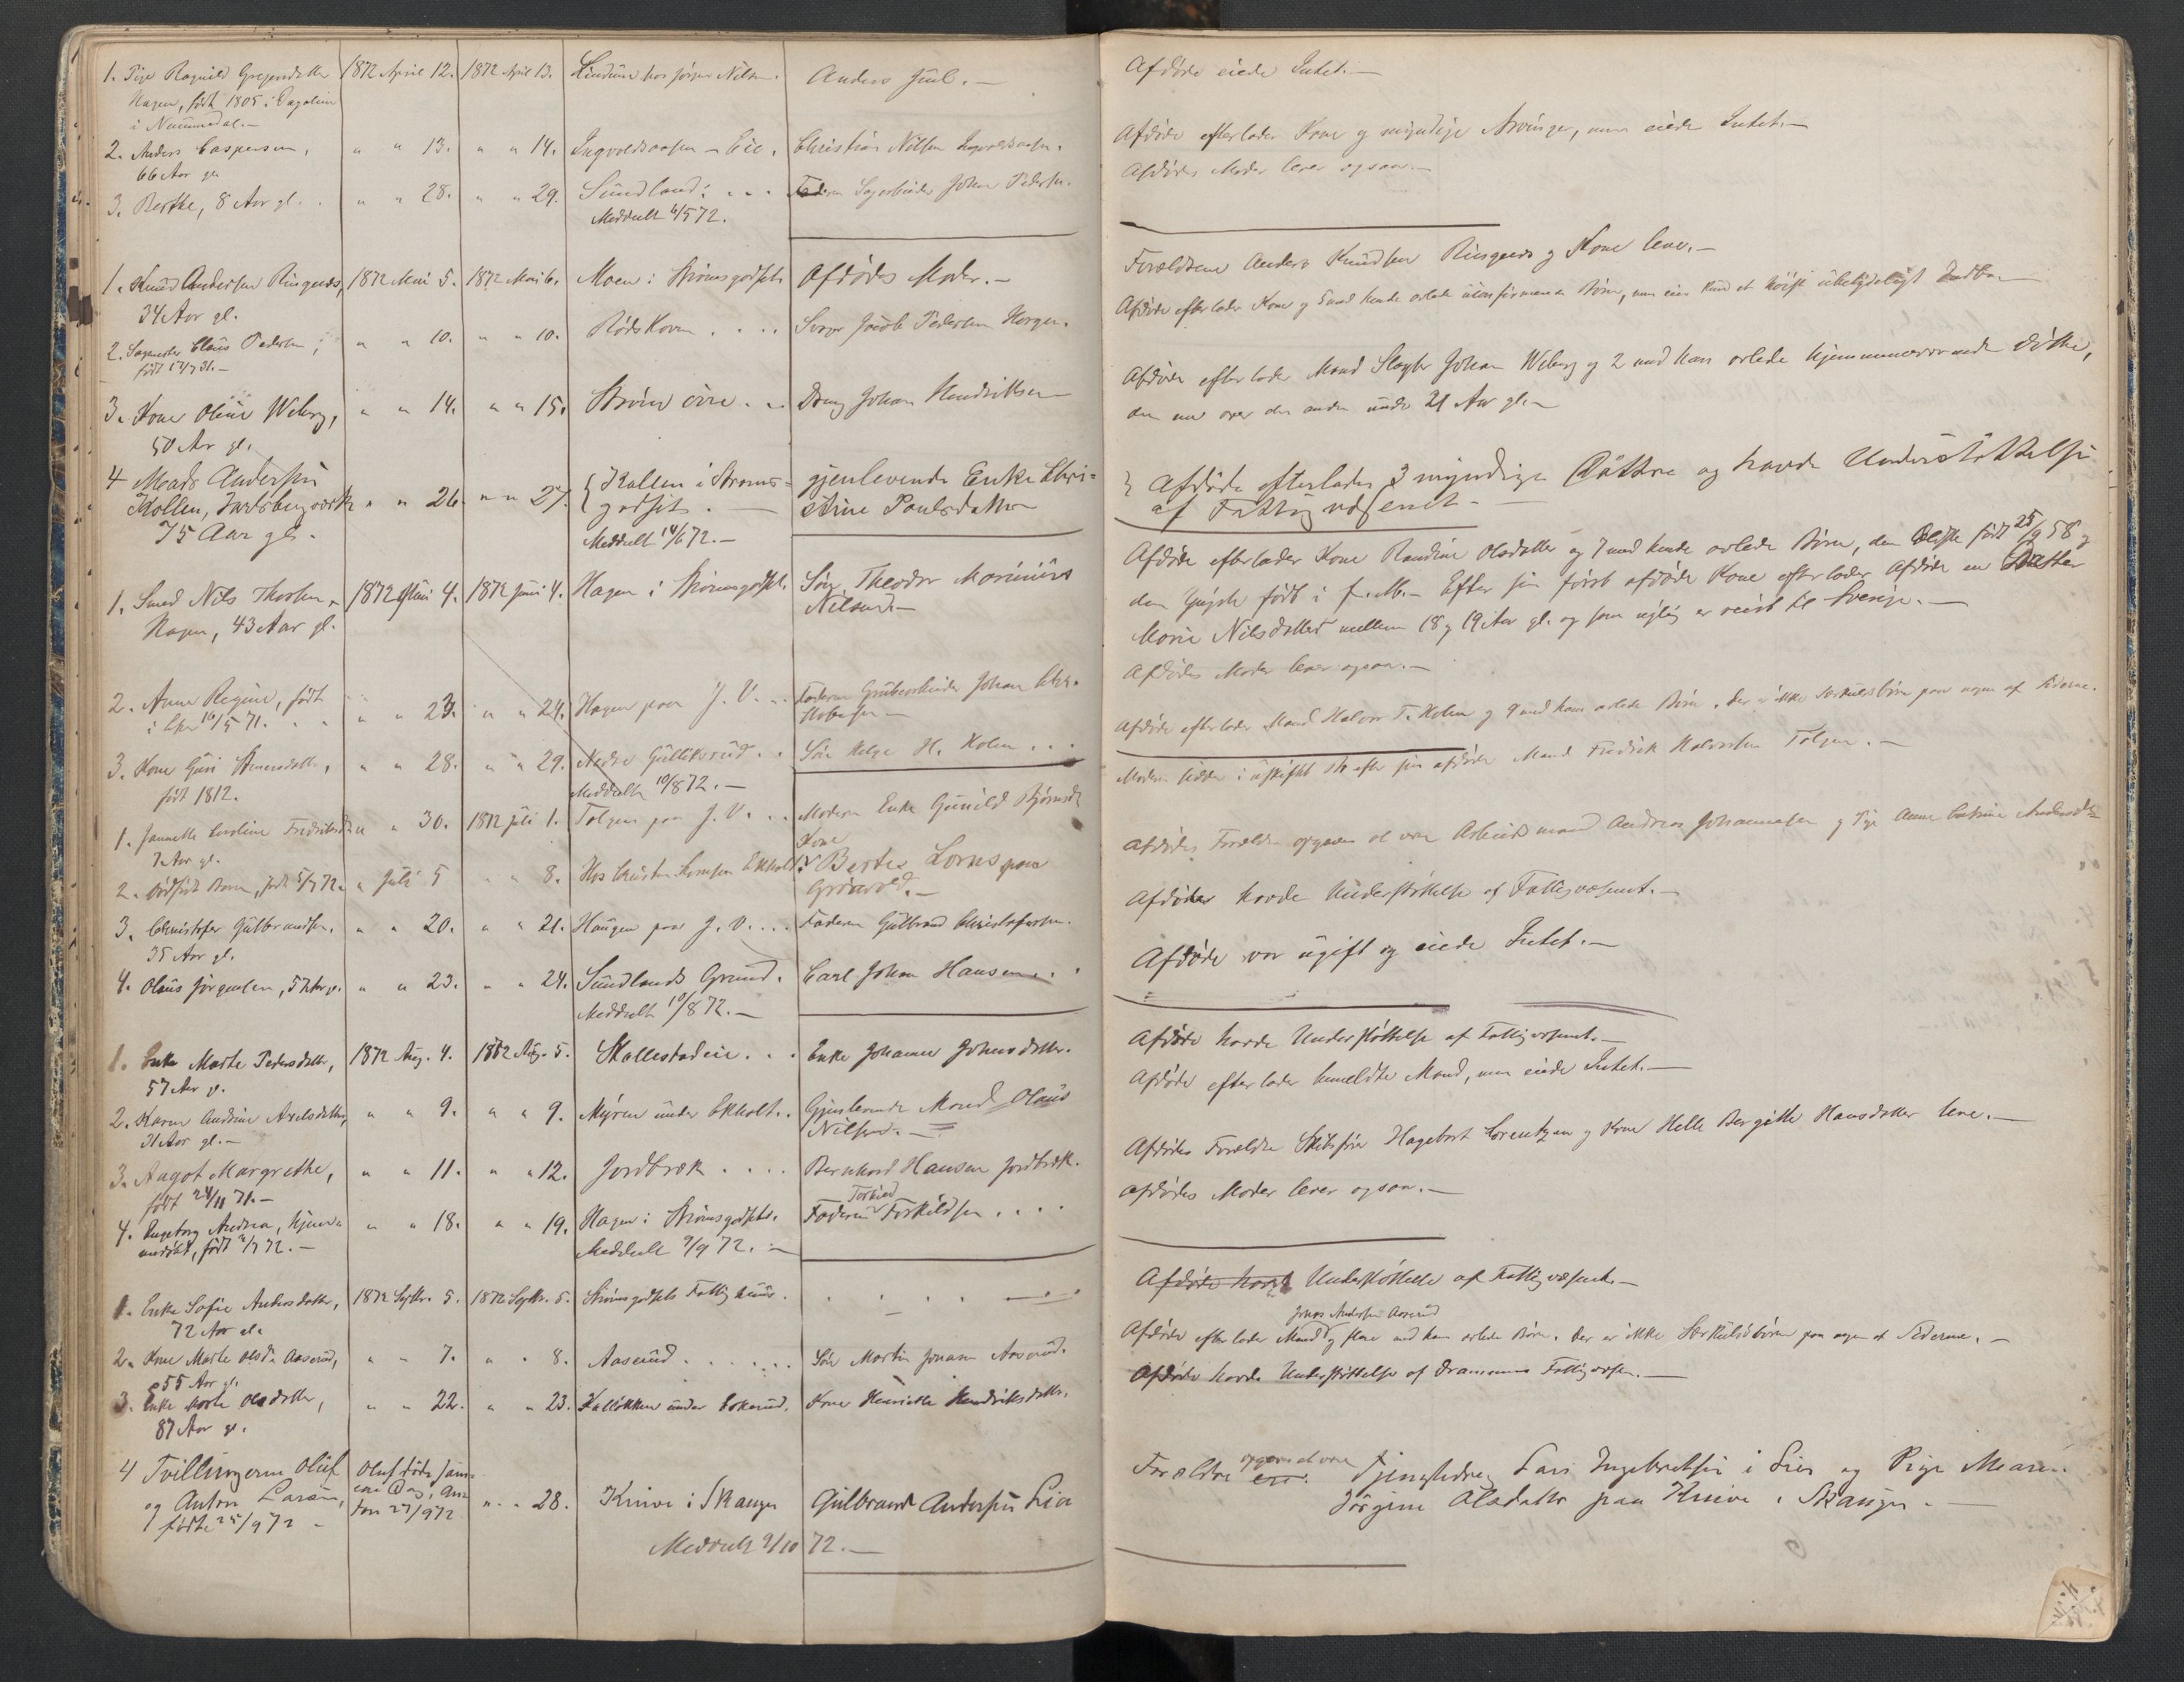 1. Pige Ragnild Gregersdatter 1872 April 12. 1872 April 13. Lindum hos Jørgen Nilsen. Anders Juul.—
Hagen, født 1805 i
i Nummedal.—
2. Anders Caspersen, " " 13. " " 14. Ingvoldsaasen - Eie. Christian Nilsen Ingvoldsaasen.
66 Aar gl.
3. Berthe, 8 Aar gl. . " " 28. " " 29. Sundland: . . . Faderen Sagarbeider Johan Pedersen.
Meddelt 6/5 72.
1. Knud Andersen Ringnæs, 1872 Mai 5. 1872 Mai 6. Moen i Strømsgodset. Afdødes Moder.—
34 Aar gl.
2. Sagmester Claus Pedersen, " " 10. " " 10. Rødskoven . . . . Svoger Jacob Pedersen Horgen.
født 31.—
3. Kone Oline Weberg, " " 14. " " 15. Strøm øvre . . Dreng Johan Hendriksen—
50 Aar gl.
4 Mads Andersen
Kollen, Jarlsbergværk " " 26 " " 27. {Kollen i Strøms= gjenlevende Enke Chri=
75 Aar gl. godset. — stine Poulsdatter
Meddelt 14/6 72.—
1. Smed Nils Thorsen 1872 Juni 4. 1872 Juni 4. Hagen i Strømsgodset. Søn Theodor Marinius
Hagen, 43 Aar gl. Nilsen.—
2. Anne Regine, født
i Eker 16/5 71. . . " " 23. " " 24. Hagen paa J. V. . . Faderen Grubearbeider Johan Chri-
stophersen—
3. Kone Guri Steensdatter, " " 28. " " 29. Nedre Gulliksrud . . Søn Helge H. Holm . . .
født 1812. Meddelt 10/8 72.—
1. Jannette Caroline Fredriksdatter " 30. 1872 Juli 1. Tolgen paa J. V. . . Moderen Enke Gunild Bjørnsdt
7 Aar gl. Kone
2. Dødfødt Barn, født 5/7 72. " Juli 5 " " 8. Hos Christen Ekholt Berte Lorns paa
Grønvold.—
3. Christofer Gulbrandsen, " " 20. " " 21. Haugen paa J. V. . . . Faderen Gulbrand Christofersen.
35 Aar gl.
4. Olaus Jørgensen, 57 Aar gl. " " 23. " " 24. Sundlands Grund. Carl Johan Hansen . .
Meddelt 10/8 72.—
1. Enke Marte Pedersdatter, 1872 Aug. 4. 1872 Aug. 5. Skallestadeie . . . Enke Johanne Johnsdatter.
57 Aar gl.
2. Karen Andrine Axelsdatter, " " 9. " " 9. Myren under Ekholt . . Gjenlevende Mand Olaus
31 Aar gl.— Nilsen.—
3. Aagot Margrethe, " " 11. " " 12. Jordbræk . . . . Bernhard Hansen Jordbræk.
født 24/11 71.— Torkild
4. Ingeborg Andrea, hjemme " " 18. " " 19. Hagen i Strømsgodset. Faderen Torkildsen . . . .
døbt, født 72.— Meddelt 9/9 72.—
1. Enke Sofie Andersdatter, 1872 Septbr. 5. 1872 Septbr. 5. Strømsgodsets Fattighuus. . . . . —
72 Aar gl.
2. Kone Marte Olsdr. Aaserud, " " 7. " " 8. Aaserud . . . . . . Søn Martin Jonasen Aaserud.
55 Aar gl.
3. Enke Marte Olsdatter, " " 22. " " 23. Kalløkken under Eskerud. Kone Henriette Hendriksdatter.
87 Aar gl.
4 Tvillingerne Oluf Oluf døde sam=
og Anton Larsen, me Dag, An=
fødte 25/9 72 — ton 27/9 72 " " 28. Knive i Skauger Gulbrand Andersen Lia
Meddelt 9/10 72.—
Afdøde eiede Intet.—
Afdøde efterlader Kone og myndige Arvinge, men eiede Intet.—
Afdødes Moder lever ogsaa.—
Forældrene Anders Knudsen Ringnæs og Kone leve.—
Afdøde efterlader Kone og 5 med hende avlede uconfirmerede Børn, men eier kun et høist ubetydeligt Indbo.—
Afdøde efterlader Mand Slagter Johan Weberg og 2 med ham avlede hjemmeværende Døttre,
den ene over den anden under 21 Aar gl.—
} Afdøde efterlader 3 myndige Døttre og havde Understøttelse
af Fattigvæsenet—
Afdøde efterlader Kone Randine Olsdatter og 7 med hende avlede Børn, den Ældste født 25/9 58 og
den Yngste født i f. M.— Efter sin først afdøde Kone efterlader Afdøde en Datter
Marie Nilsdatter mellem 18 og 19 Aar gl. og som nylig er reist til Sverige.—
Afdødes Moder lever ogsaa.—
Afdøde efterlader Mand Halvor T. Holm og 9 med ham avlede Børn. Der er ikke Særkuldsbørn paa nogen af Siderne.
Moderen sidder i uskiftet Bo efter sin afdøde Mand Fredrik Halvorsen Tolgen.—
Afdødes Forældre opgaves at være Arbeidsmand Andreas Johannesen og Pige Anne Cathrine Andersdtr.
Afdødes havde Understøttelse af Fattigvæsenet.—
Afdøde var ugift og eiede Intet.—
Afdøde havde Understøttelse af Fattigvæsenet.—
Afdøde efterlader bemeldte Mand, men eiede Intet.—
Afdødes Forældre Skibsfører Hagebart Lorentzen og Kone Helle Bergitte Hansdatter leve.—
Afdødes Moder lever ogsaa.—
Afdøde havde Understøttelse af Fattigvæsenet.—
Jonas Andersen Aaserud
Afdøde efterlader Mand og flere med ham avlede Børn. Der er ikke Særkuldsbørn paa nogen af Siderne.—
Afdøde havde Understøttelse af Drammens Fattigvæsen.—
opgaves at være
Forældre ere: Tjenestedreng Lars Ingebretsen i Lier og Pige Maren
Jørgine Olsdatter paa Knive i Skauger.—